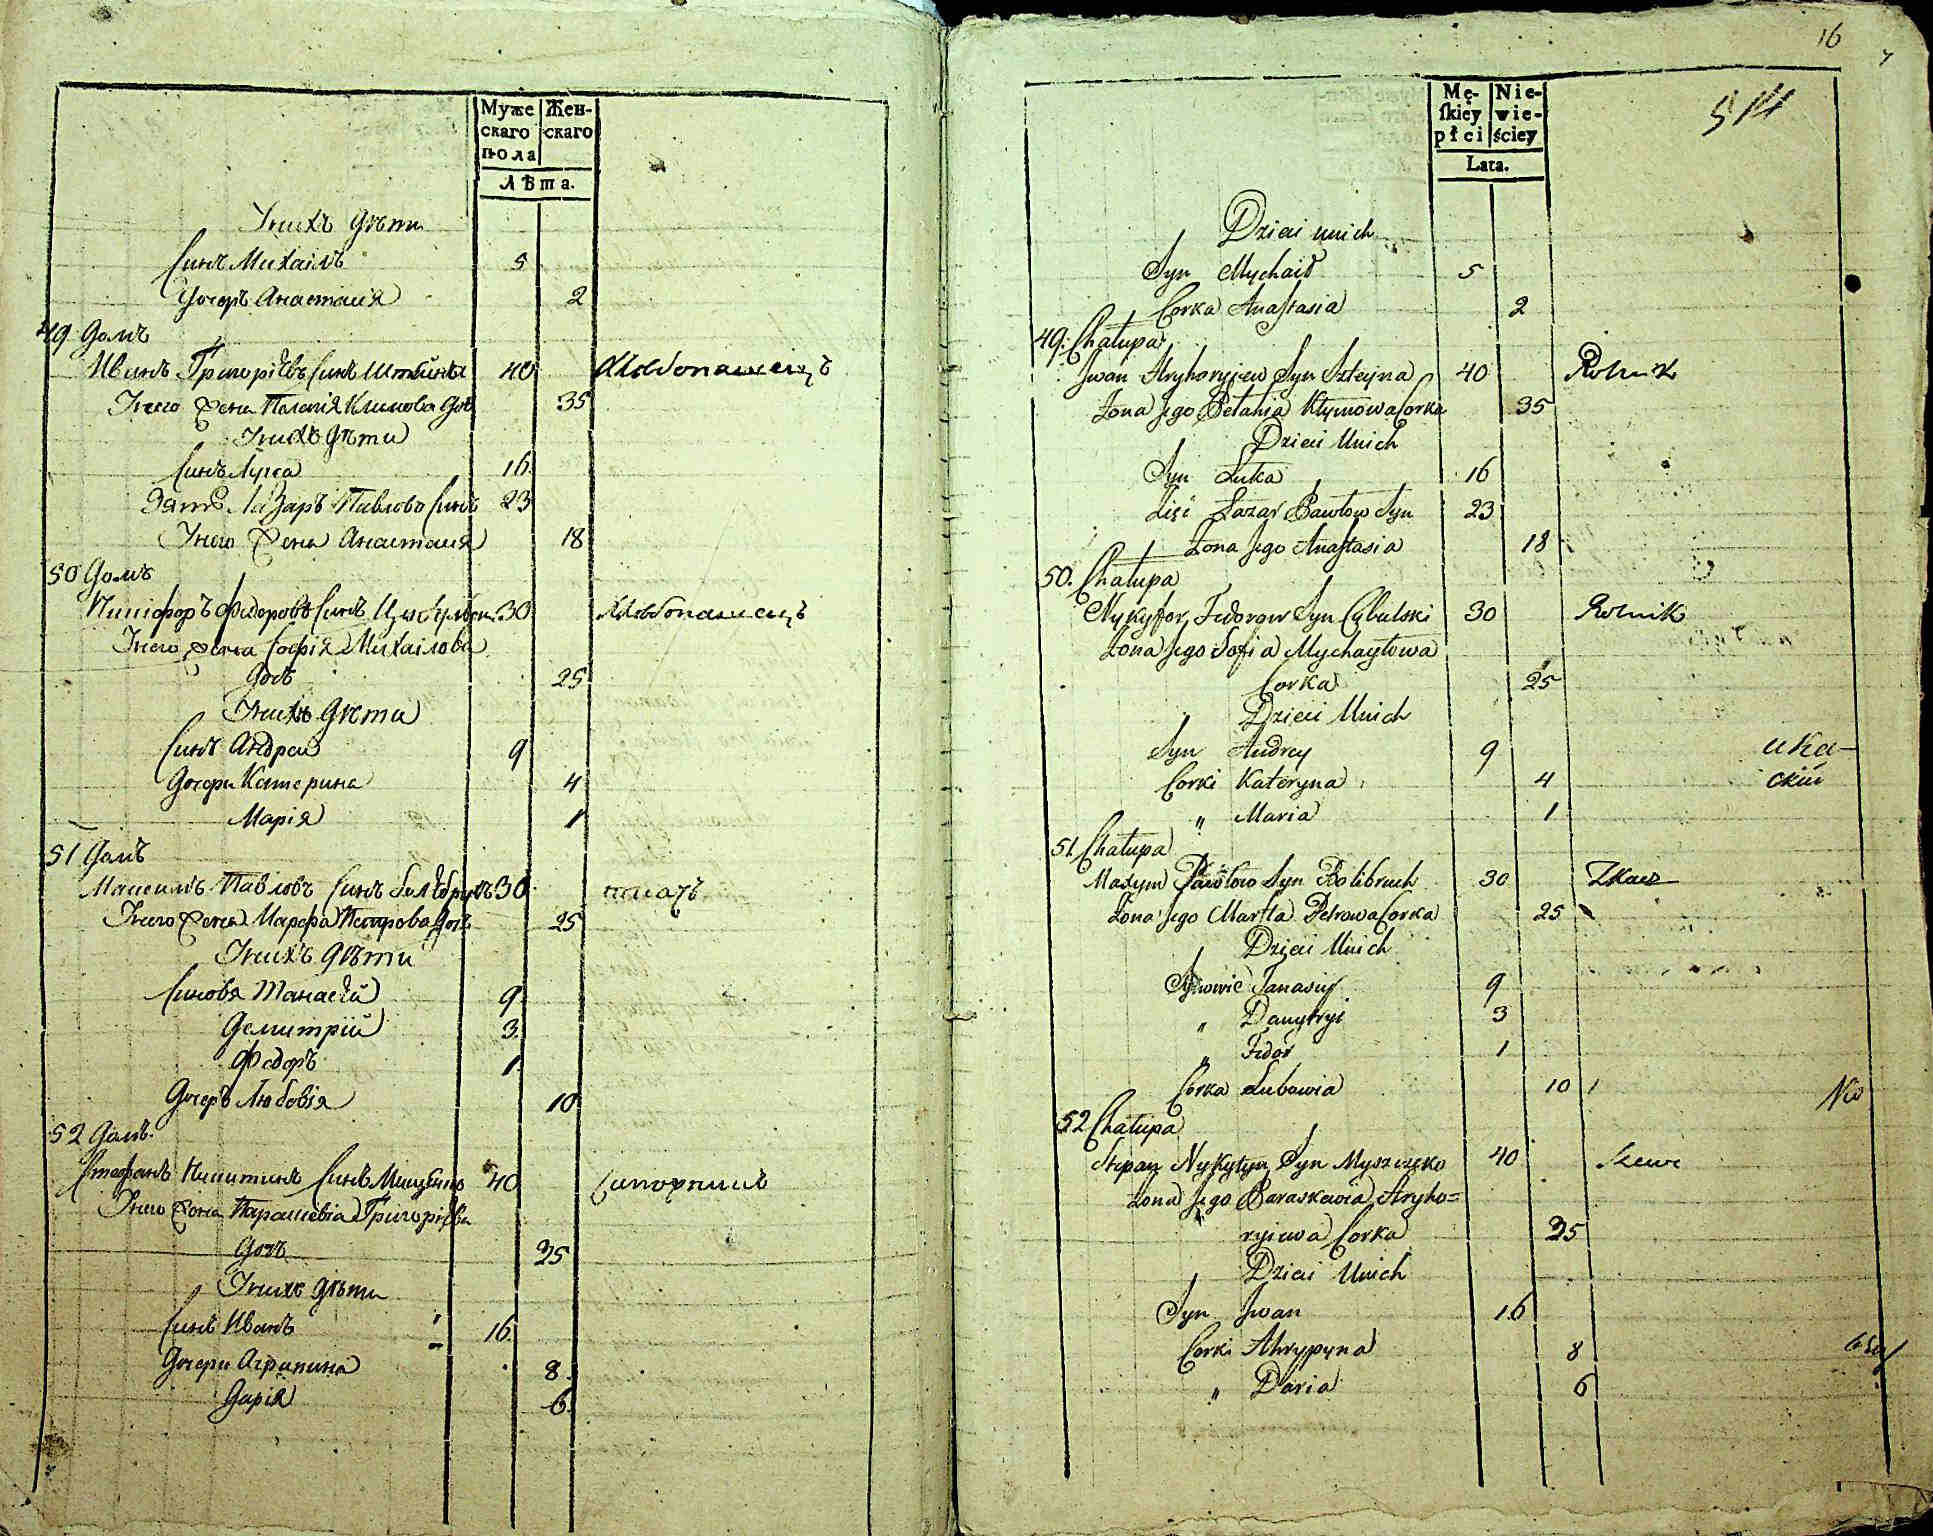 Муже
скаго
пола
Жен-
скаго
Лѣта.
У нихъ дѣти
Синъ Михаилъ 5
Дочеръ Анастасія 2
49 Домъ
Иванъ Григоріевъ Синъ Штейна 40 Хлѣбопашецъ
У него жена Пелагія Климова доч 35
У нихъ дѣти
Синъ Лука 16
Зять Лазаръ Павлово Синъ 23
У него жена Анастасія 18
50 Домъ
Никифоръ Федоровъ Синъ Цибулѣски 30 Хлѣбопашецъ
У него жена Софія Михаилова
Доч 25
У нихъ дѣти
Синъ Андрей 9
Дочери Катерина 4
Марія 1
51 Домъ
Максимъ Павловъ Синъ Болѣбрухъ 30 ткачъ
У него жена Марфа Петрова доч 25
У нихъ дѣти
Синовя Танасѣй 9
Демитрій 3
Федоръ 1
Дочеръ Любовія 10
52 Домъ
Стефанъ Никитинъ Синъ Мишченко 40 Сапожникъ
У него жона Парасковіа Григоріева
Доч 35
У нихъ дѣти
Синъ Иванъ 16
Дочери Агрипина 8
Дарія 6
16
514
Mę-
skiey
płci
Nie-
wie-
ściey
Lata.
Dzieci unich
Syn Mychaił 5
Corka Anastasia 2
49. Chałupa
Jwan Hryhoryiew Syn Szteyna 40 Rolnik
Żona Jego Pelahia Kłymowa Corka 35
Dzieci Unich
Syn Łuka 16
Zięć Łazar Pawłow Syn 23
Żona Jego Anastasia 18
50. Chałupa
Nykyfor Fedorow Syn Cybulski 30 Rolnik
Żona Jego Sofia Mychayłowa
Corka 25
Dzieci Unich
Syn Andrey 9
Corki Kateryna 4
" Maria 1
51 Chałupa
Maxym Pawłow Syn Bolibruch 30 Tkacz
Żona Jego Marfta Petrowa Corka 25
Dzieci Unich
Synowie Tanasiy 9
" Demytryi 3
" Fedor 1
Corka Lubowia 10
52 Chałupa
Stepan Nykytyn Syn Myszczęko 40 Szewc
Żona Jego Paraskewia Hryho=
ryiewa Corka 35
Dzieci Unich
Syn Jwan 16
Corki Ahrypyna 8
" Daria 6